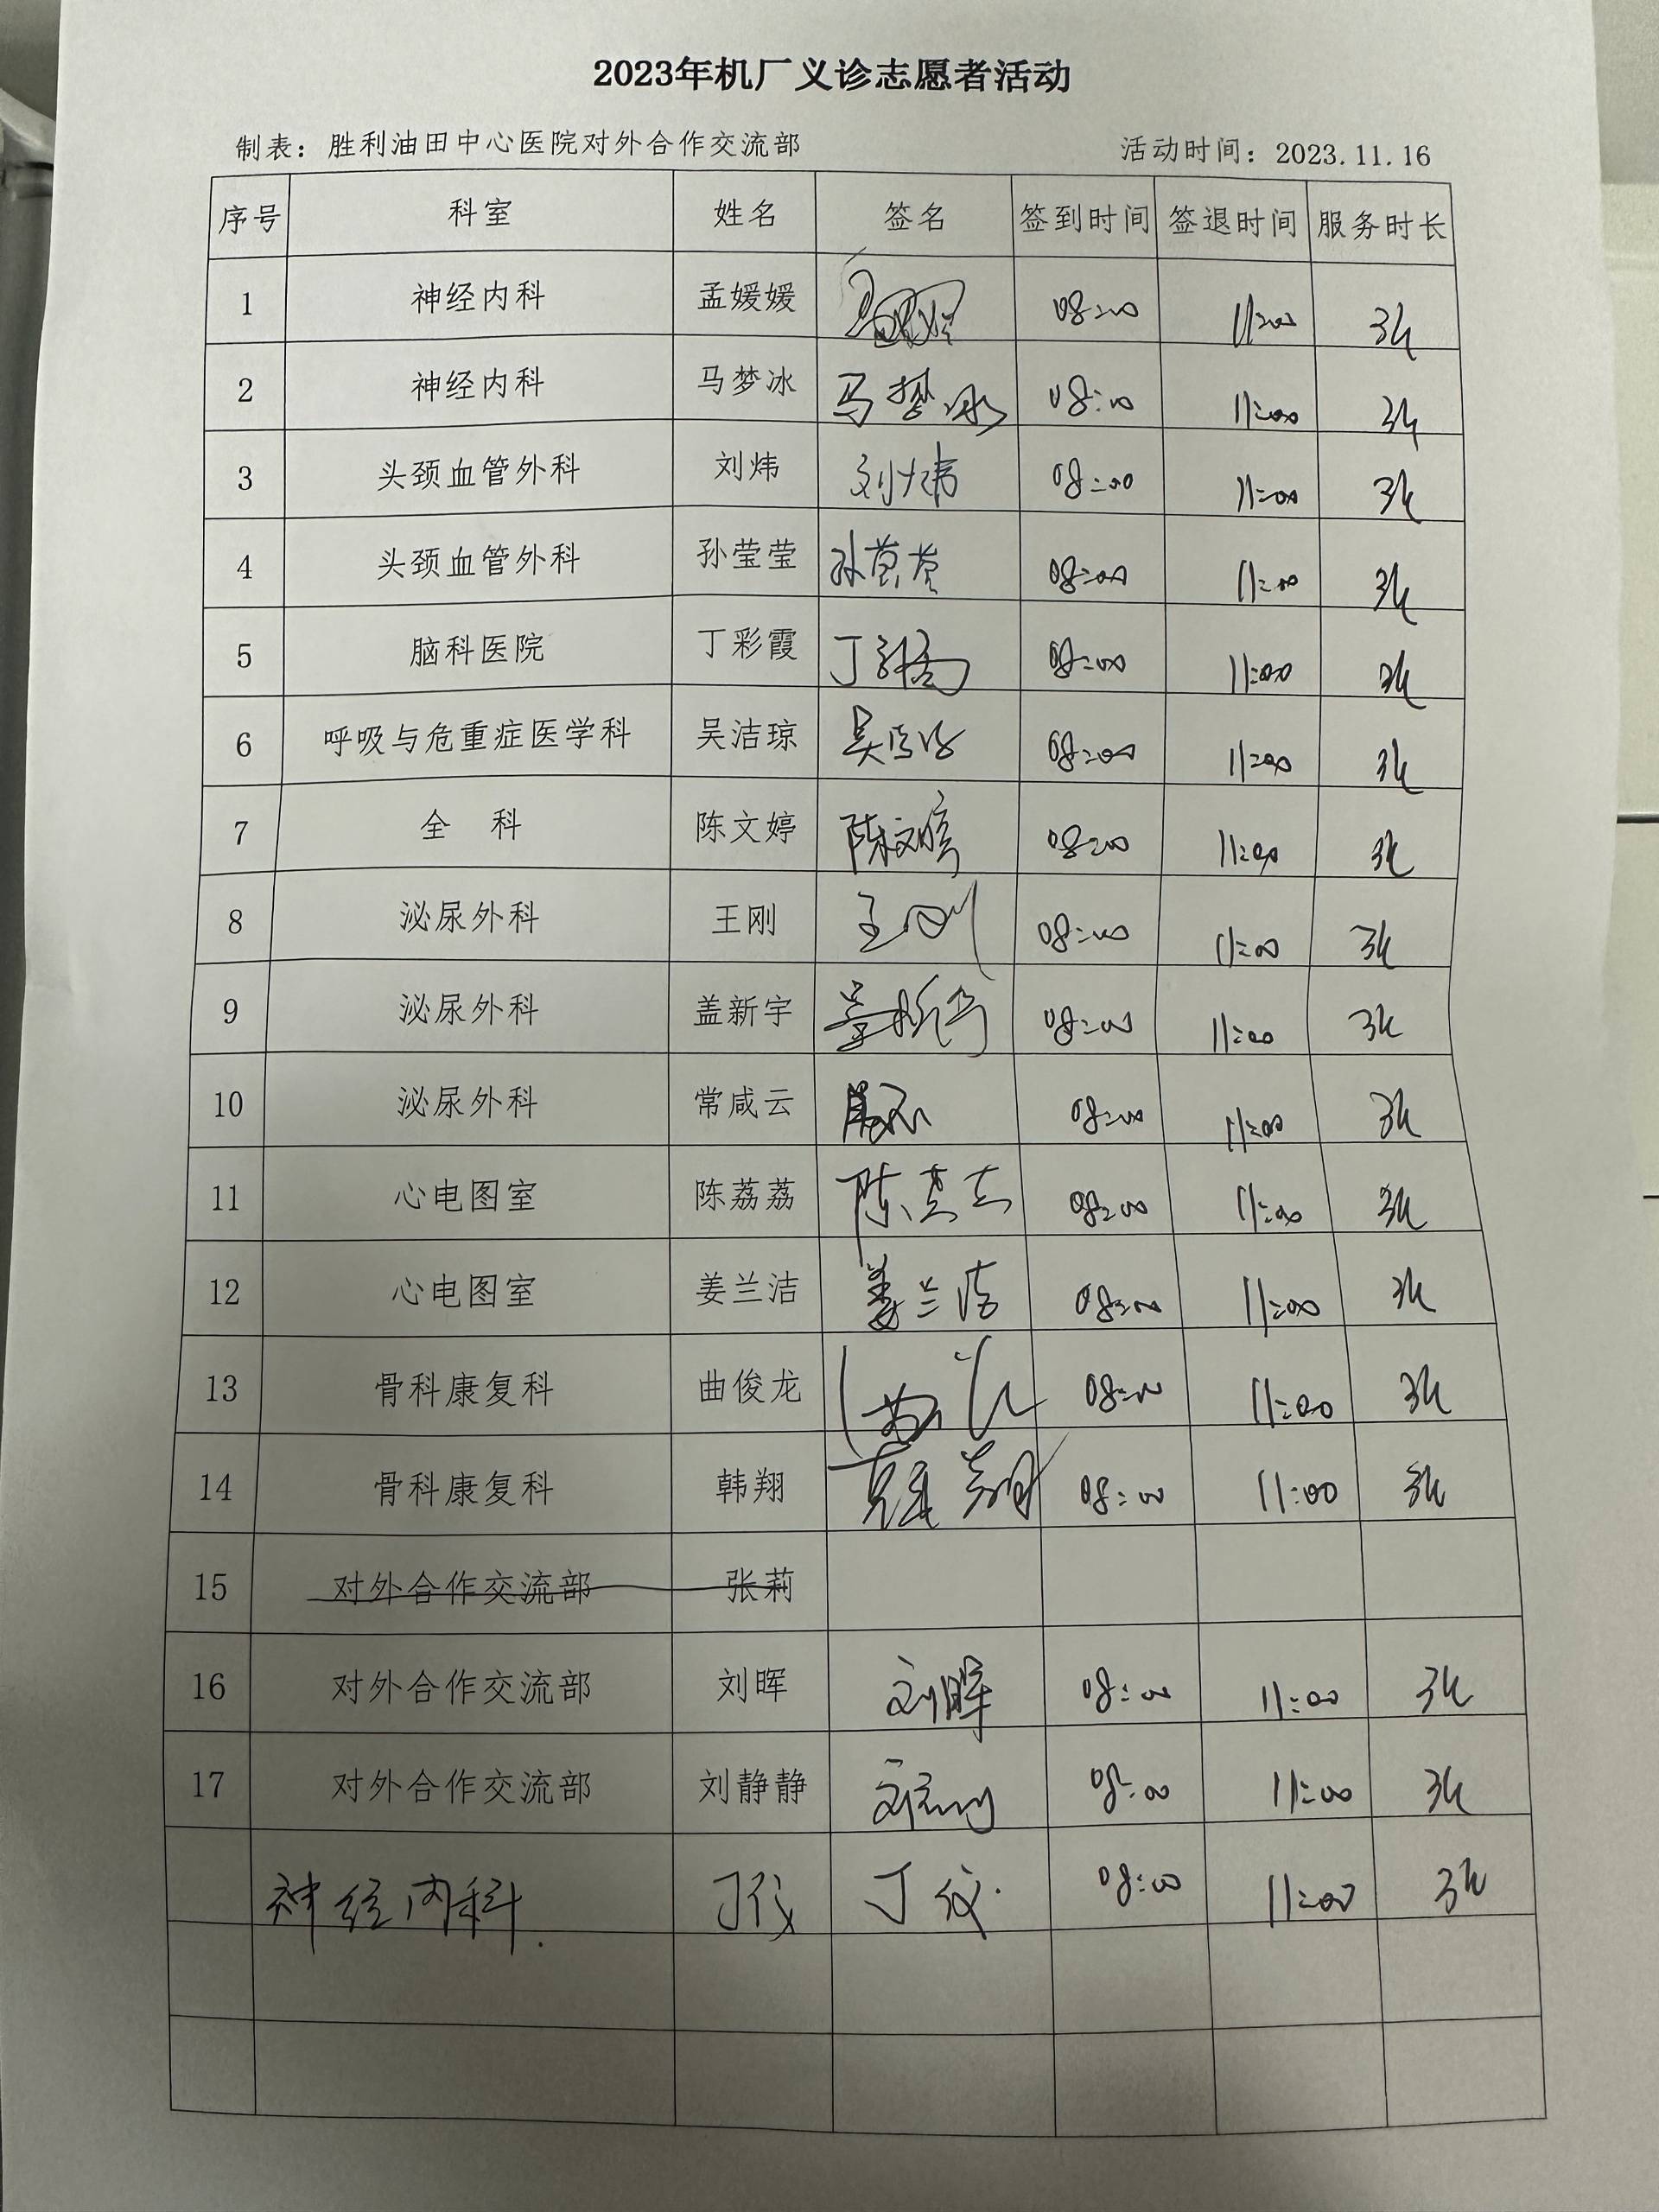 2023年机厂义诊志愿者活动
制表：胜利油田中心医院对外合作交流部 活动时间：2023.11.16
序号 科室 姓名 签名 签到时间 签退时间 服务时长
1 神经内科 孟媛媛 08:00 11:00 3h
2 神经内科 马梦冰 马梦冰 08:00 11:00 3h
3 头颈血管外科 刘炜 刘炜 08:00 11:00 3h
4 头颈血管外科 孙莹莹 孙莹莹 08:00 11:00 3h
5 脑科医院 丁彩霞 丁彩霞 08:00 11:00 3h
6 呼吸与危重症医学科 吴洁琼 吴洁琼 08:00 11:00 3h
7 全 科 陈文婷 陈文婷 08:00 11:00 3h
8 泌尿外科 王刚 王刚 08:00 11:00 3h
9 泌尿外科 盖新宇 盖新宇 08:00 11:00 3h
10 泌尿外科 常咸云 08:00 11:00 3h
11 心电图室 陈荔荔 陈荔荔 08:00 11:00 3h
12 心电图室 姜兰洁 姜兰洁 08:00 11:00 3h
13 骨科康复科 曲俊龙 08:00 11:00 3h
14 骨科康复科 韩翔 韩翔 08:00 11:00 3h
15 对外合作交流部 张莉
16 对外合作交流部 刘晖 刘晖 08:00 11:00 3h
17 对外合作交流部 刘静静 刘静静 08:00 11:00 3h
神经内科. 丁 丁 08:00 11:00 3h